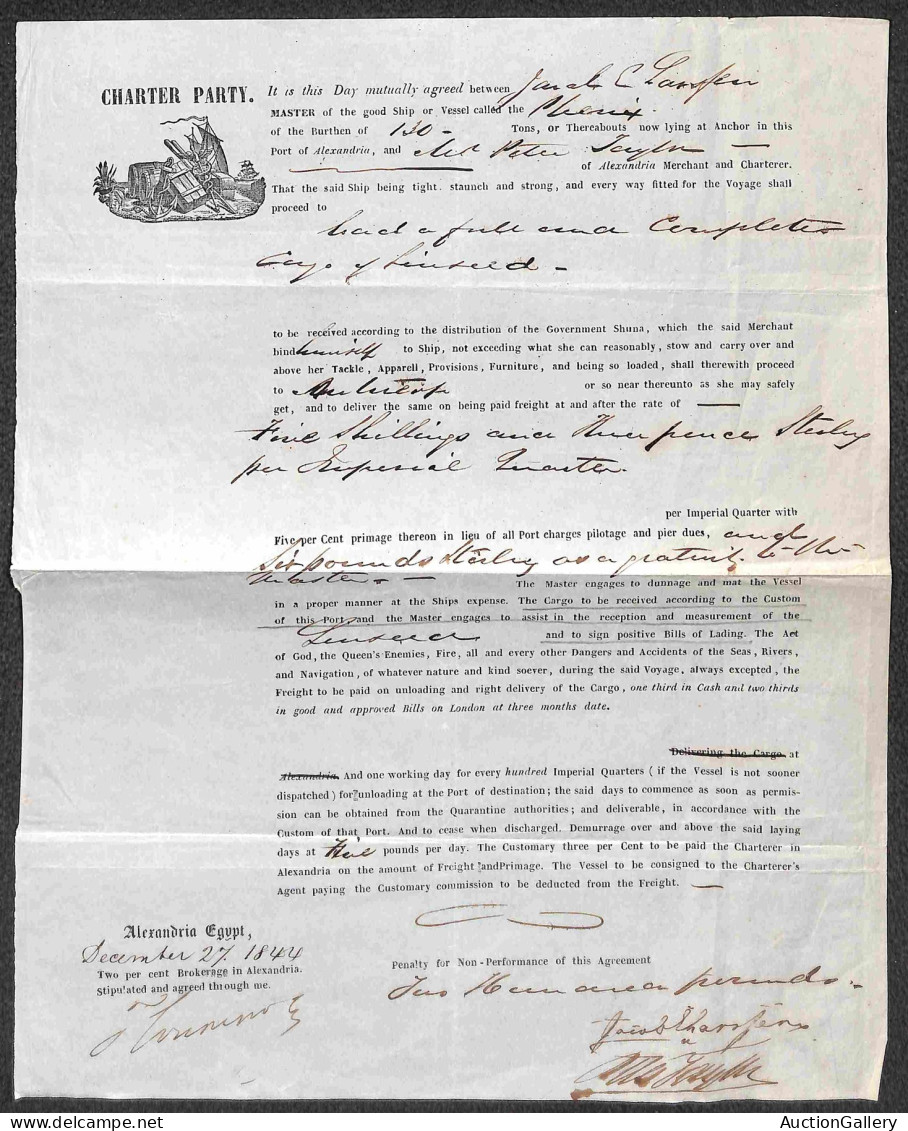 CHARTER PARTY.
It is this Day mutually agreed between Jacob C
MASTER of the good Ship or Vessel called the Phenix
of the Burthen of 130 - Tons, or Thereabouts now lying at Anchor in this
Port of Alexandria, and Mr Peter Taylor —
of Alexandria Merchant and Charterer.
That the said Ship being tight, staunch and strong, and every way fitted for the Voyage shall
proceed to
load a full and Complete
Cargo of Linseed -
to be received according to the distribution of the Government Shuna, which the said Merchant
bind himself to Ship, not exceeding what she can reasonably, stow and carry over and
above her Tackle, Apparell, Provisions, Furniture, and being so loaded, shall therewith proceed
to or so near thereunto as she may safely
get, and to deliver the same on being paid freight at and after the rate of —
Five Shillings and Three pence Sterling
per Imperial Quarter.
per Imperial Quarter with
Five per Cent primage thereon in lieu of all Port charges pilotage and pier dues, and
Six pounds Sterling as a gratuity to the
Master - —
The Master engages to dunnage and mat the Vessel
in a proper manner at the Ships expense. The Cargo to be received according to the Custom
of this Port and the Master engages to assist in the reception and measurement of the
Linseed and to sign positive Bills of Lading. The Act
of God, the Queen's Enemies, Fire, all and every other Dangers and Accidents of the Seas, Rivers,
and Navigation, of whatever nature and kind soever, during the said Voyage, always excepted, the
Freight to be paid on unloading and right delivery of the Cargo, one third in Cash and two thirds
in good and approved Bills on London at three months date.
Delivering the Cargo at
Alexandria. And one working day for every hundred Imperial Quarters ( if the Vessel is not sooner
dispatched ) for unloading at the Port of destination; the said days to commence as soon as permis-
sion can be obtained from the Quarantine authorities; and deliverable, in accordance with the
Custom of that Port. And to cease when discharged. Demurrage over and above the said laying
days at Five pounds per day. The Customary three per Cent to be paid the Charterer in
Alexandria on the amount of Freight and Primage. The Vessel to be consigned to the Charterer's
Agent paying the Customary commission to be deducted from the Freight. —
Alexandria Egypt,
December 27. 1844
Two per cent Brokerage in Alexandria.
Stipulated and agreed through me.
Penalty for Non-Performance of this Agreement
Two Hundred pounds. -
Jacob
Taylor
AuctionGallery